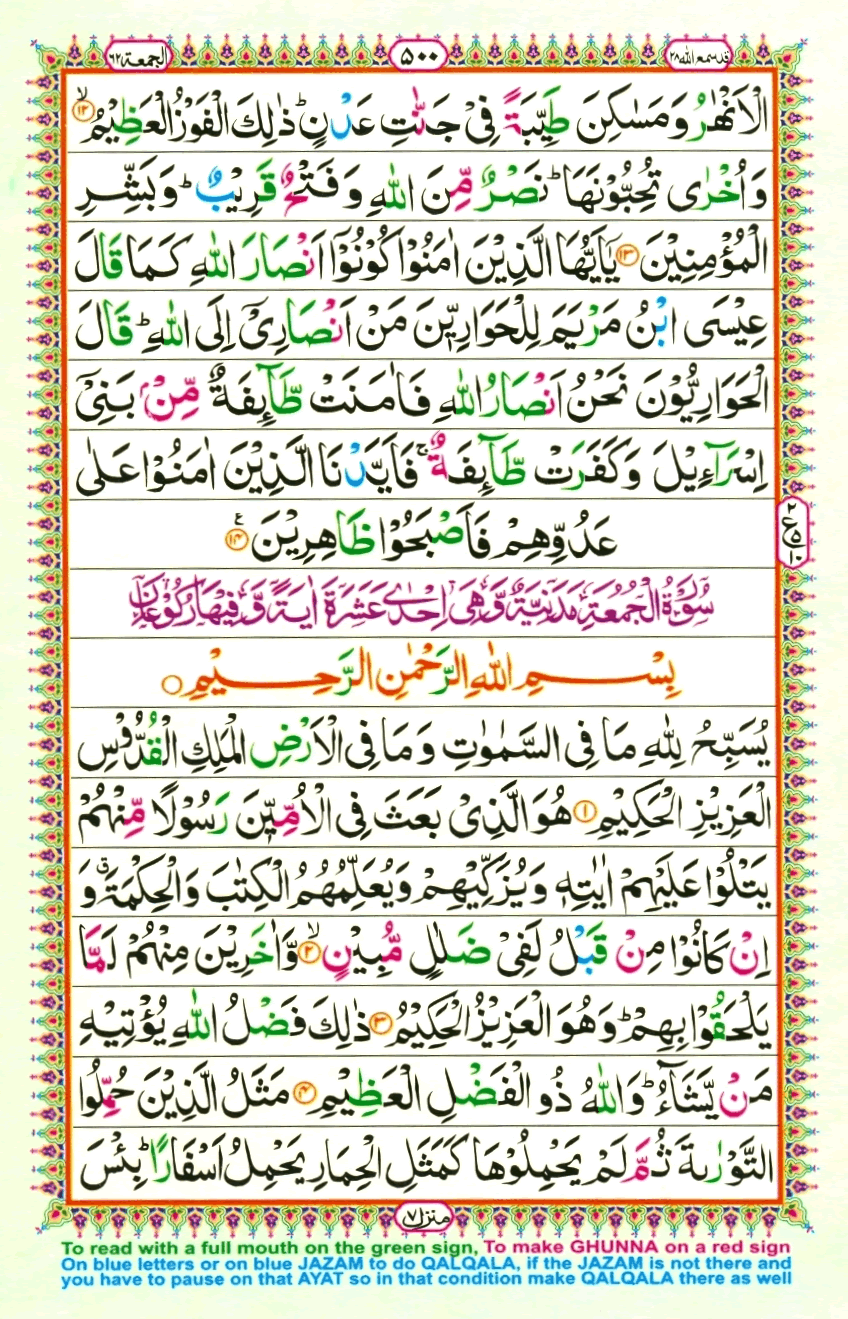 قد سمع الله ٢٨
٥٠٠
الجمعة ٦٢
الْاَنْهٰرُ وَمَسٰكِنَ طَيِّبَةً فِىْ جَنّٰتِ عَدْنٍ ؕ ذٰلِكَ الْفَوْزُ الْعَظِيْمُ ۙ‏﴿۱۲﴾
وَاُخْرٰى تُحِبُّوْنَهَا ؕ نَصْرٌ مِّنَ اللّٰهِ وَفَتْحٌ قَرِيْبٌ ؕ وَبَشِّرِ
الْمُؤْمِنِيْنَ ﴿۱۳﴾ يٰۤاَيُّهَا الَّذِيْنَ اٰمَنُوْا كُوْنُوْۤا اَنْصَارَ اللّٰهِ كَمَا قَالَ
عِيْسَى ابْنُ مَرْيَمَ لِلْحَوَارِيّٖنَ مَنْ اَنْصَارِىْۤ اِلَى اللّٰهِ ؕ قَالَ
الْحَوَارِيُّوْنَ نَحْنُ اَنْصَارُ اللّٰهِ فَاٰمَنَتْ طَّآئِفَةٌ مِّنْۢ بَنِىْۤ
اِسْرَآءِيْلَ وَكَفَرَتْ طَّآئِفَةٌ ۚ فَاَيَّدْنَا الَّذِيْنَ اٰمَنُوْا عَلٰى
عَدُوِّهِمْ فَاَصْبَحُوْا ظَاهِرِيْنَ ﴿۱۴﴾ ع
٢ ع ٥ ١٠
سُوْرَةُ الْجُمُعَةِ مَدَنِيَّةٌ وَّهِىَ اِحْدٰى عَشَرَةَ اٰيَةً وَّفِيْهَا رُكُوْعَانِ
بِسْمِ اللّٰهِ الرَّحْمٰنِ الرَّحِيْمِ ○
يُسَبِّحُ لِلّٰهِ مَا فِى السَّمٰوٰتِ وَمَا فِى الْاَرْضِ الْمَلِكِ الْقُدُّوْسِ
الْعَزِيْزِ الْحَكِيْمِ ﴿۱﴾ هُوَ الَّذِىْ بَعَثَ فِى الْاُمِّيّٖنَ رَسُوْلًا مِّنْهُمْ
يَتْلُوْا عَلَيْهِمْ اٰيٰتِهٖ وَيُزَكِّيْهِمْ وَيُعَلِّمُهُمُ الْكِتٰبَ وَالْحِكْمَةَ ۗ وَ
اِنْ كَانُوْا مِنْ قَبْلُ لَفِىْ ضَلٰلٍ مُّبِيْنٍ ۙ﴿۲﴾ وَّاٰخَرِيْنَ مِنْهُمْ لَمَّا
يَلْحَقُوْا بِهِمْ ؕ وَهُوَ الْعَزِيْزُ الْحَكِيْمُ ﴿۳﴾ ذٰلِكَ فَضْلُ اللّٰهِ يُؤْتِيْهِ
مَنْ يَّشَآءُ ؕ وَاللّٰهُ ذُو الْفَضْلِ الْعَظِيْمِ ﴿۴﴾ مَثَلُ الَّذِيْنَ حُمِّلُوا
التَّوْرٰىةَ ثُمَّ لَمْ يَحْمِلُوْهَا كَمَثَلِ الْحِمَارِ يَحْمِلُ اَسْفَارًا ؕ بِئْسَ
منزل ٧
To read with a full mouth on the green sign, To make GHUNNA on a red sign
On blue letters or on blue JAZAM to do QALQALA, if the JAZAM is not there and
you have to pause on that AYAT so in that condition make QALQALA there as well